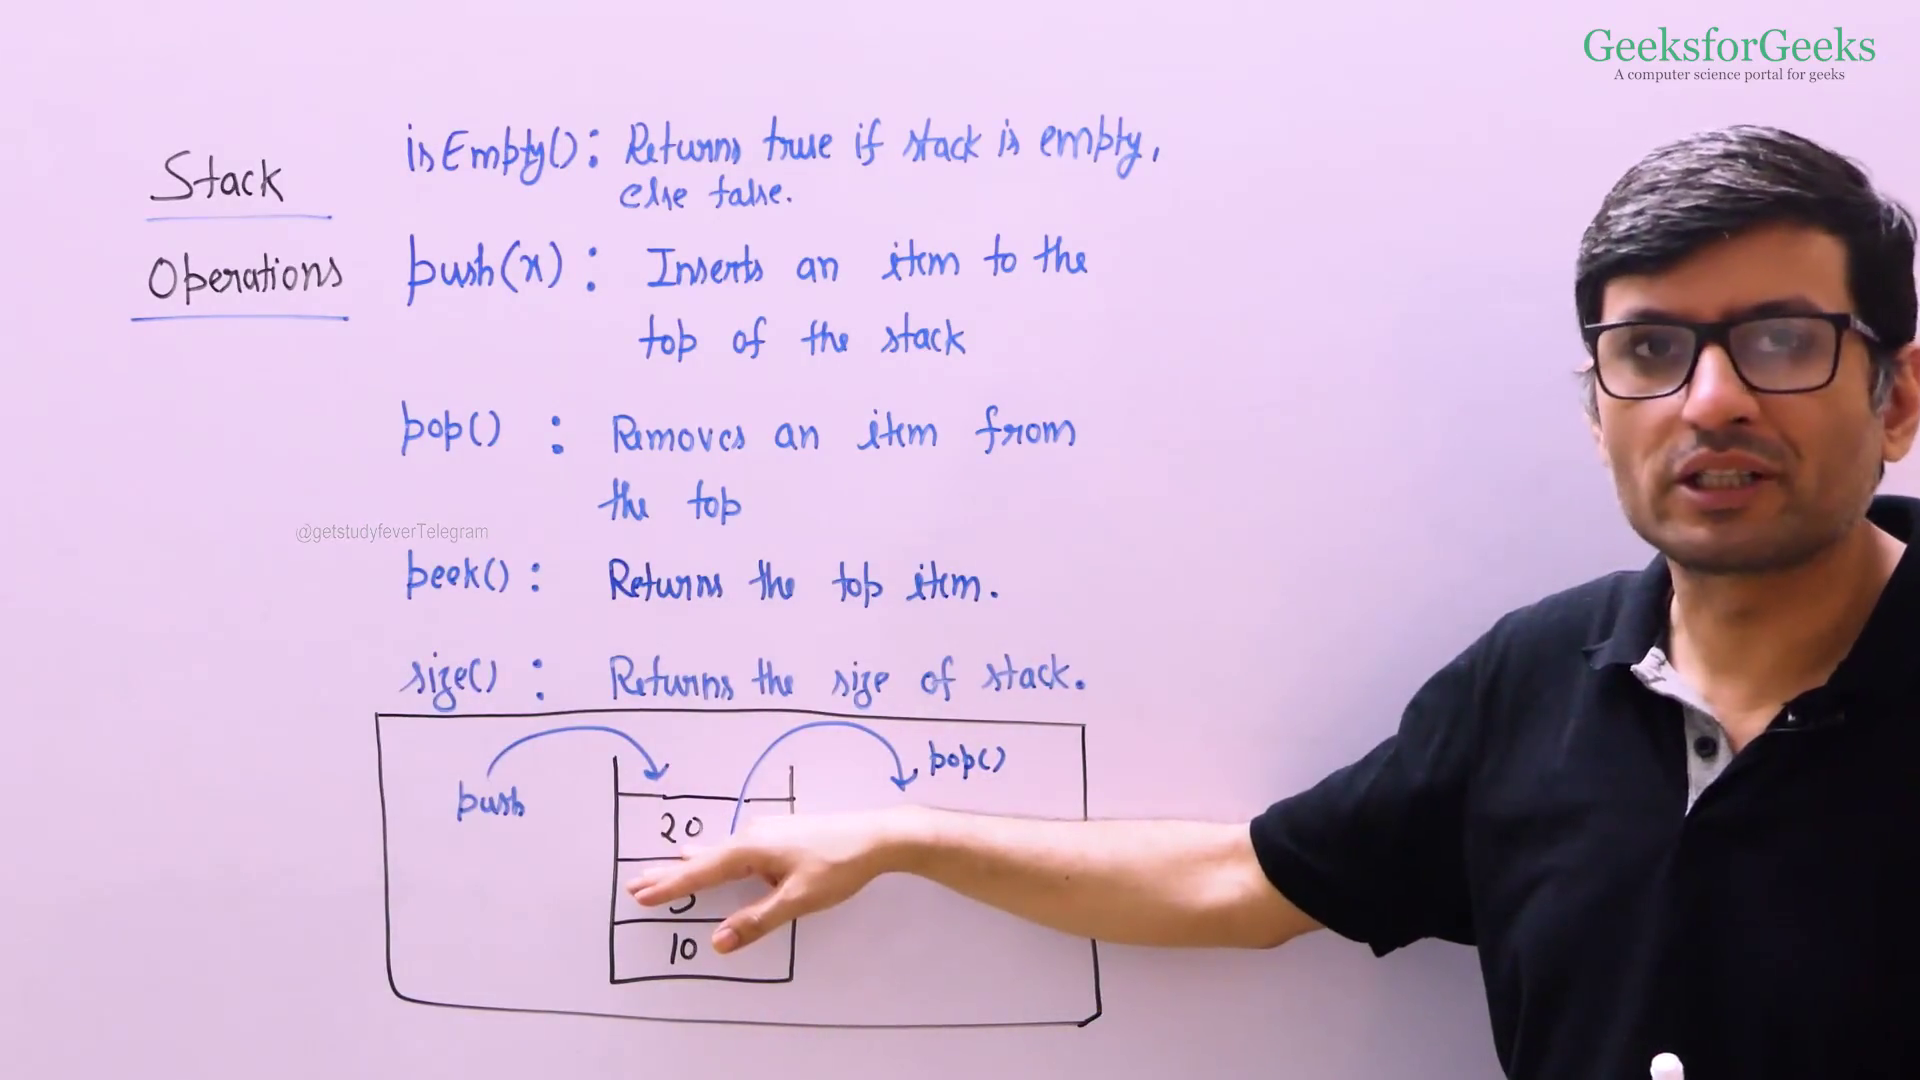 GeeksforGeeks
A computer science portal for geeks
Stack
Operations
isEmpty() : Returns true if stack is empty,
else false.
push(x) : Inserts an item to the
top of the stack
pop() : Removes an item from
the top
@getstudyfeverTelegram
peek() : Returns the top item.
size() : Returns the size of stack.
push
pop()
20
10